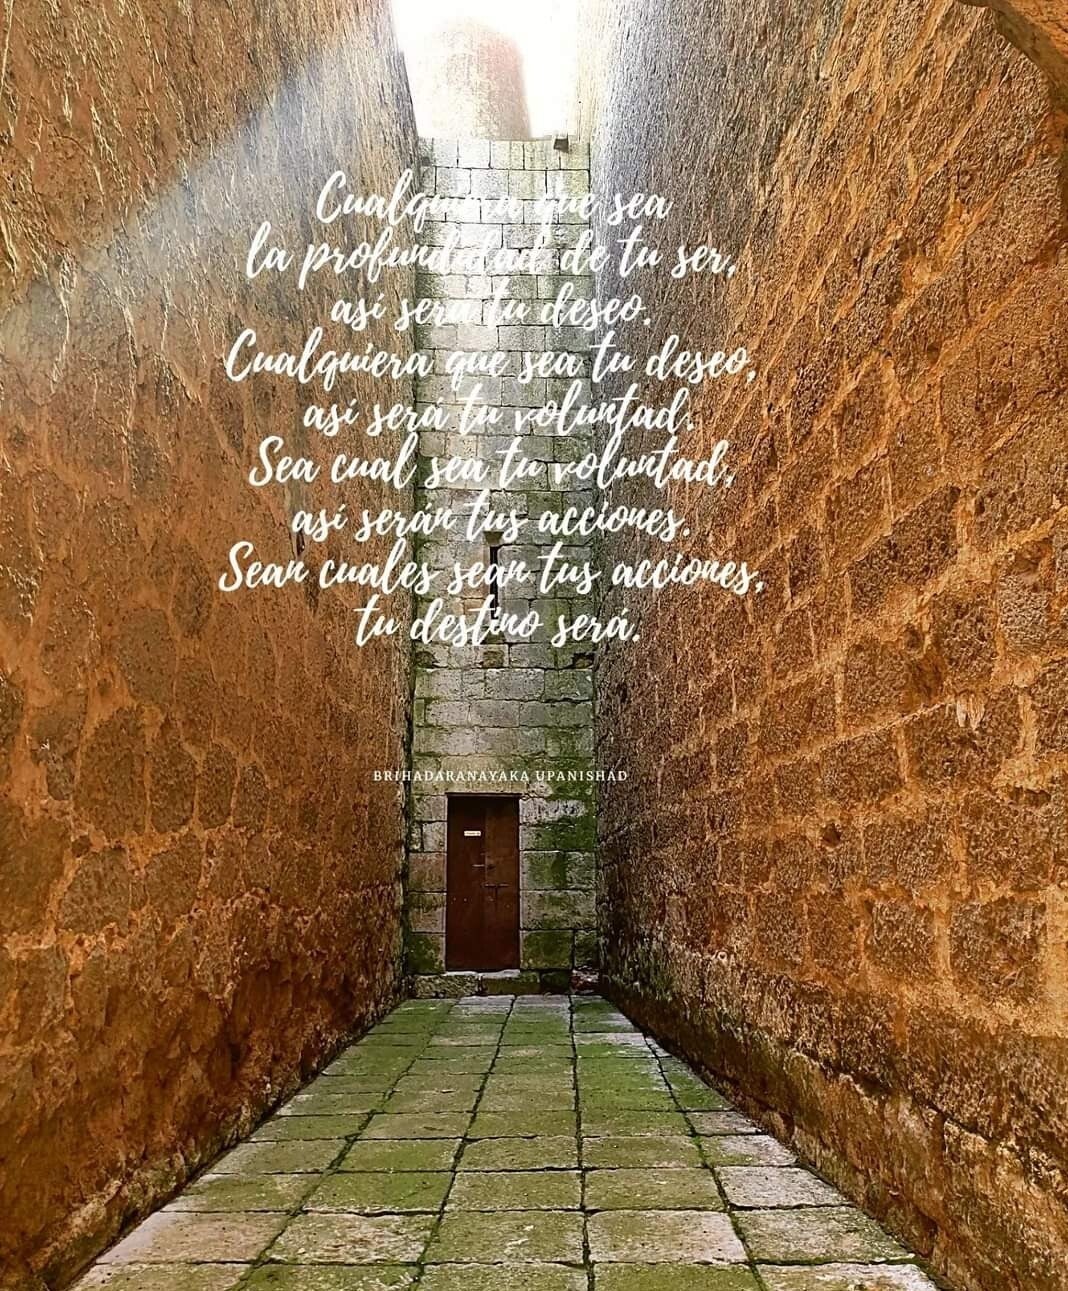 Cualquiera que sea
la profundidad de tu ser,
así será tu deseo.
Cualquiera que sea tu deseo,
así será tu voluntad.
Sea cual sea tu voluntad,
así serán tus acciones.
Sean cuales sean tus acciones,
tu destino será.
BRIHADARANAYAKA UPANISHAD